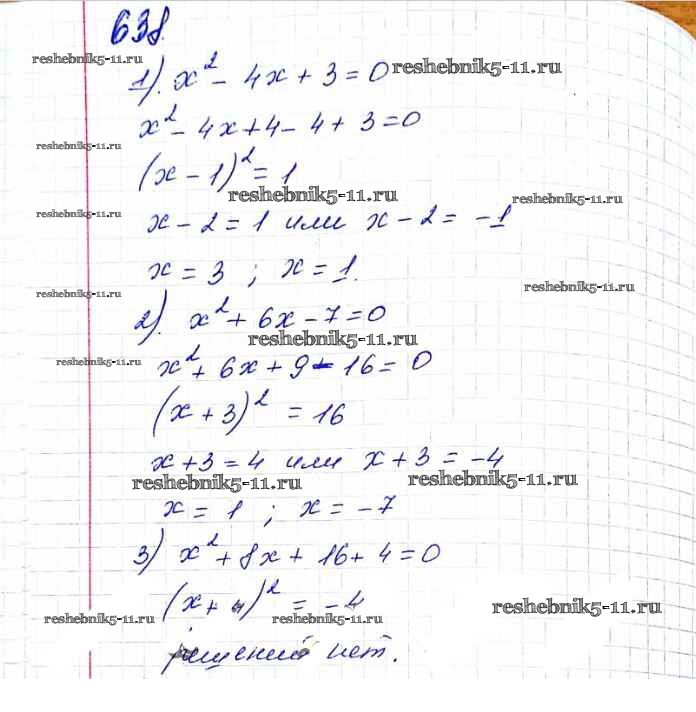 638.
reshebnik5-11.ru
1). x² - 4x + 3 = 0 reshebnik5-11.ru
x² - 4x + 4 - 4 + 3 = 0
reshebnik5-11.ru
(x - 1)² = 1
reshebnik5-11.ru reshebnik5-11.ru
reshebnik5-11.ru
x - 2 = 1 или x - 2 = -1
x = 3 ; x = 1.
reshebnik5-11.ru reshebnik5-11.ru
2). x² + 6x - 7 = 0
reshebnik5-11.ru
reshebnik5-11.ru
x² + 6x + 9 - 16 = 0
(x + 3)² = 16
x + 3 = 4 или x + 3 = -4
reshebnik5-11.ru reshebnik5-11.ru
x = 1 ; x = -7
3) x² + 8x + 16 + 4 = 0
(x + 4)² = -4
reshebnik5-11.ru reshebnik5-11.ru reshebnik5-11.ru
решений нет.